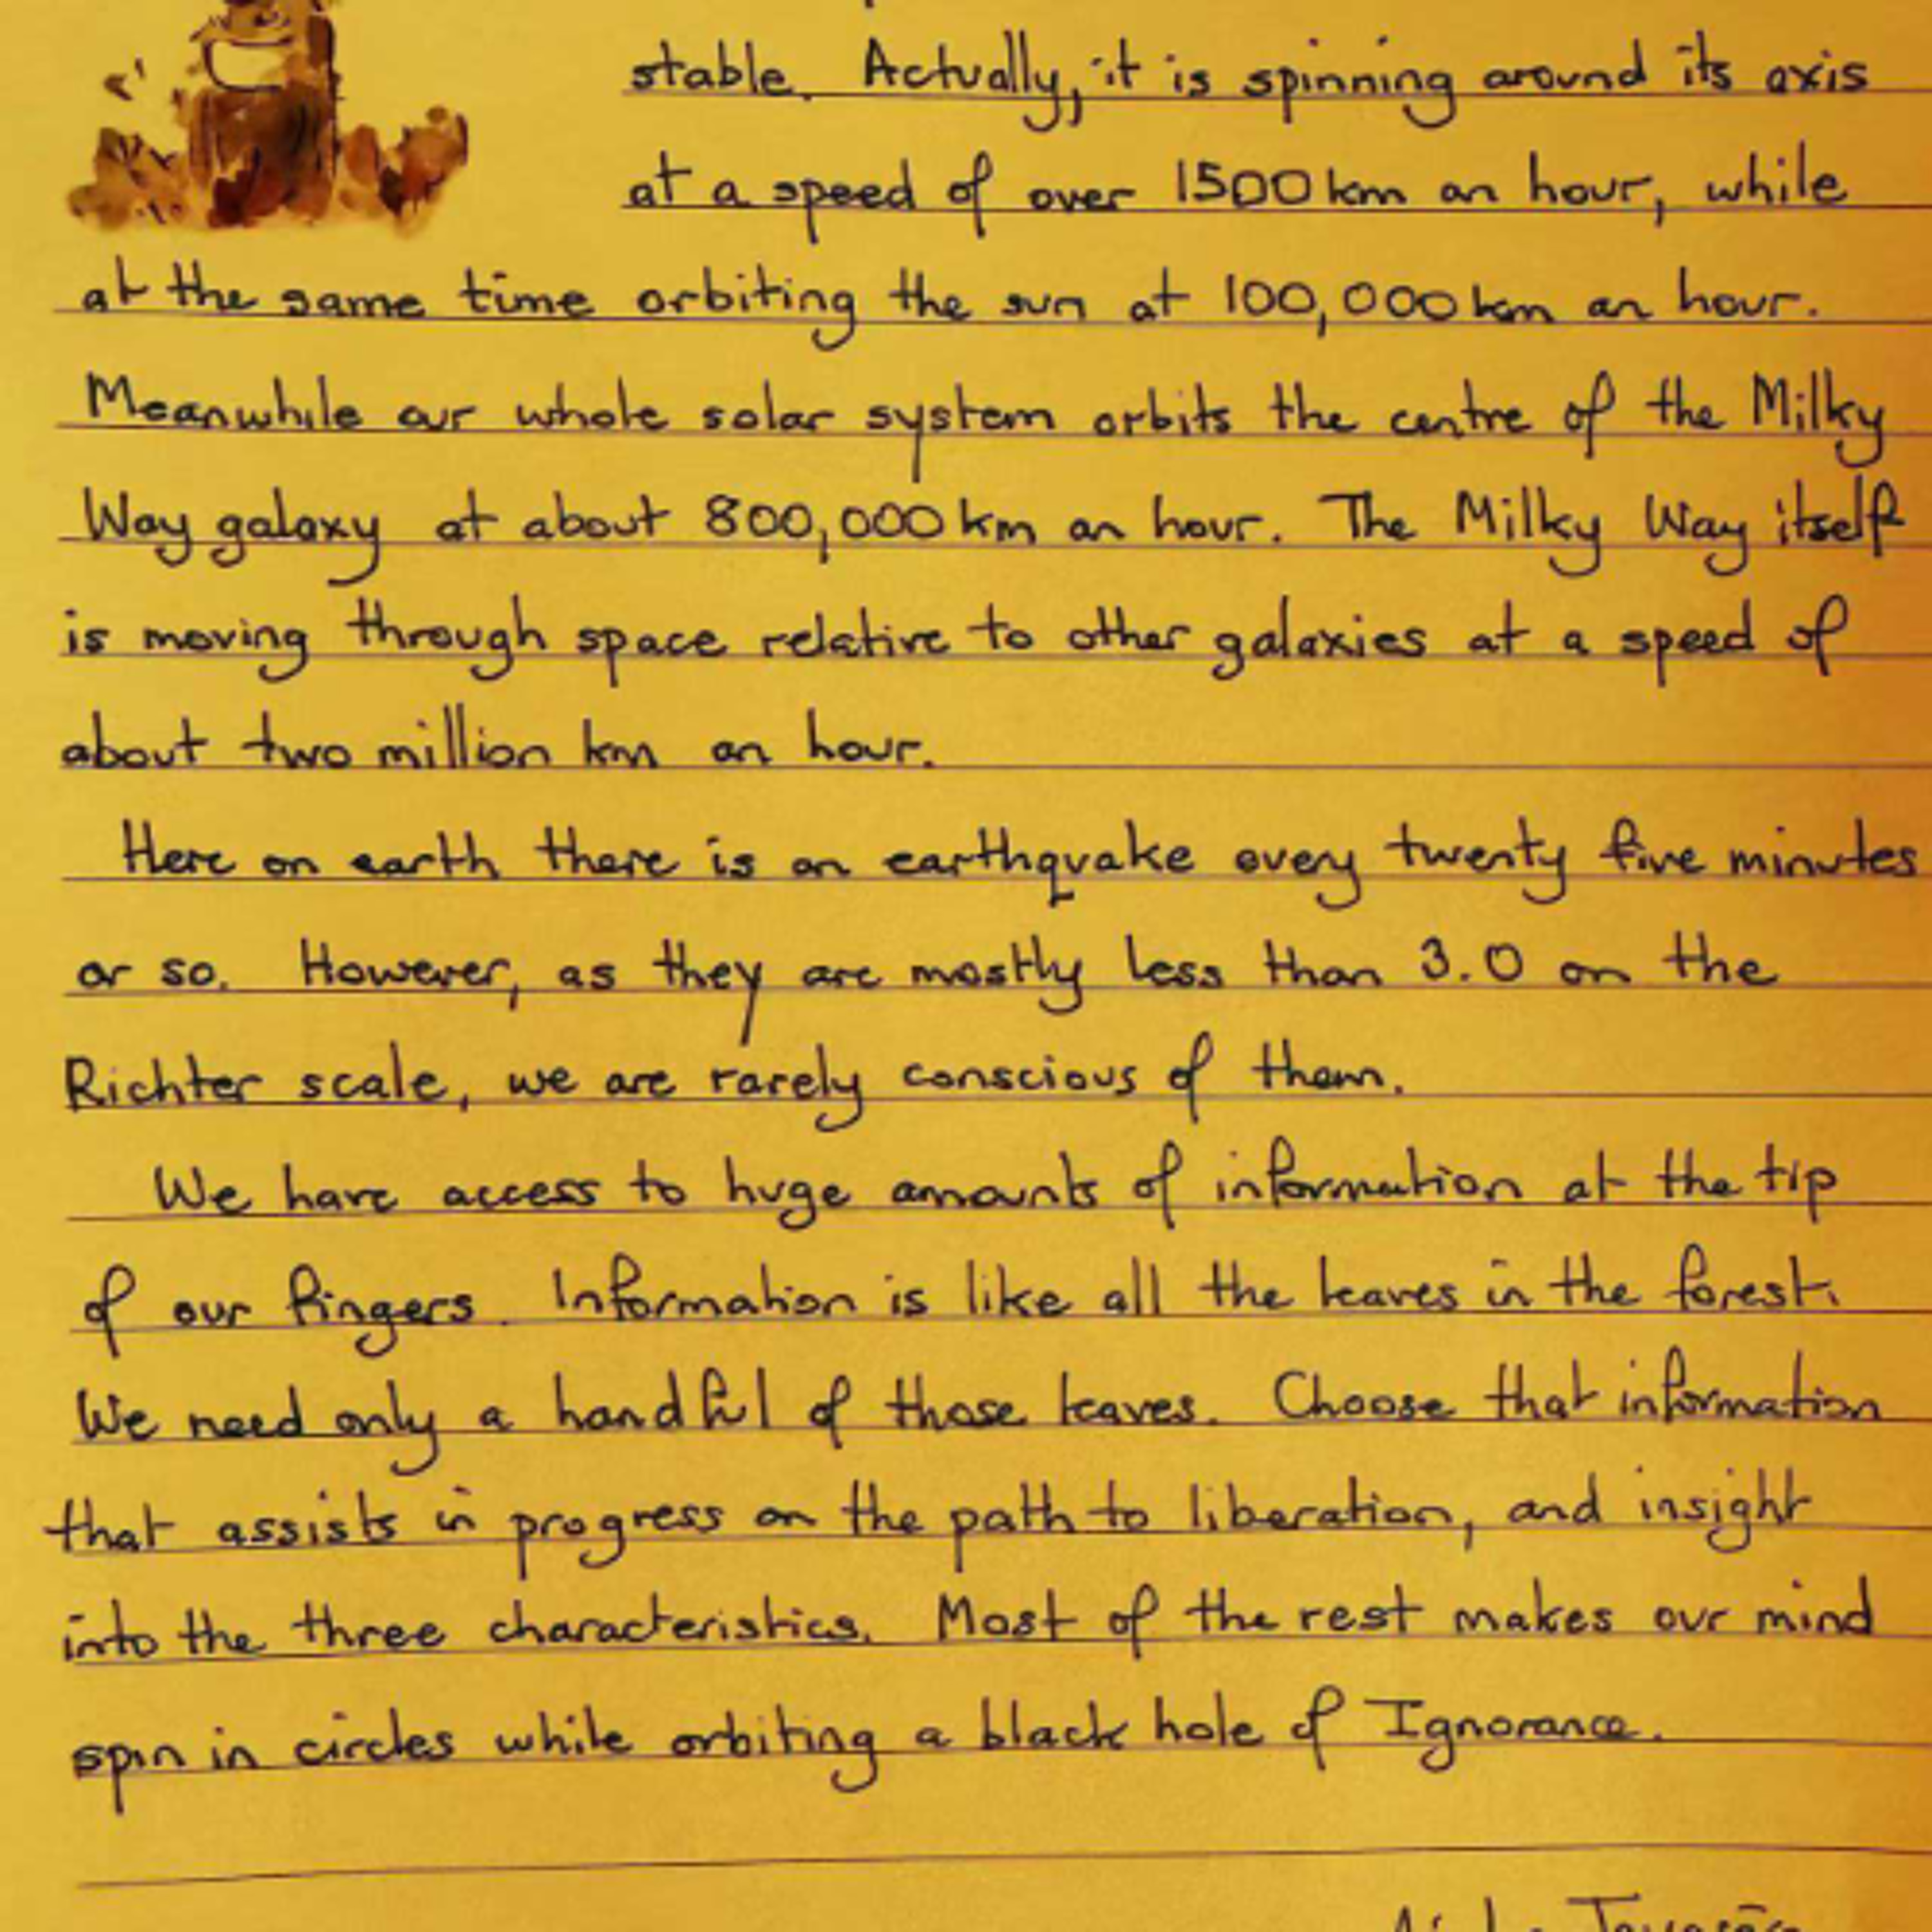 stable. Actually, it is spinning around its axis
at a speed of over 1500 km an hour, while
at the same time orbiting the sun at 100,000 km an hour.
Meanwhile our whole solar system orbits the centre of the Milky
Way galaxy at about 800,000 km an hour. The Milky Way itself
is moving through space relative to other galaxies at a speed of
about two million km an hour.
Here on earth there is an earthquake every twenty five minutes
or so. However, as they are mostly less than 3.0 on the
Richter scale, we are rarely conscious of them.
We have access to huge amounts of information at the tip
of our fingers. Information is like all the leaves in the forest.
We need only a handful of those leaves. Choose that information
that assists in progress on the path to liberation, and insight
into the three characteristics. Most of the rest makes our mind
spin in circles while orbiting a black hole of Ignorance.